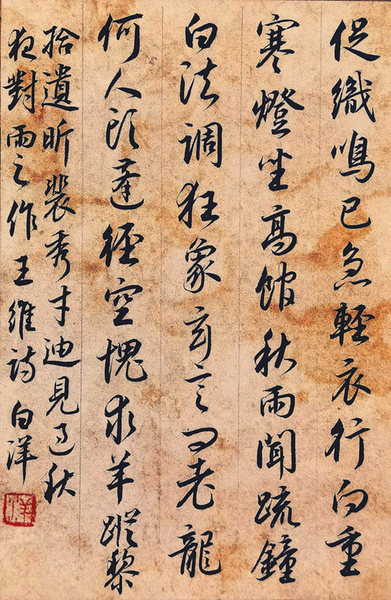 促織鳴已急輕衣行向重
寒燈坐高館秋雨聞疏鐘
白法調狂象玄言問老龍
何人顧蓬徑空愧求羊蹤黎
拾遺昕裴秀才迪見過秋
夜對雨之作王維詩 白洋